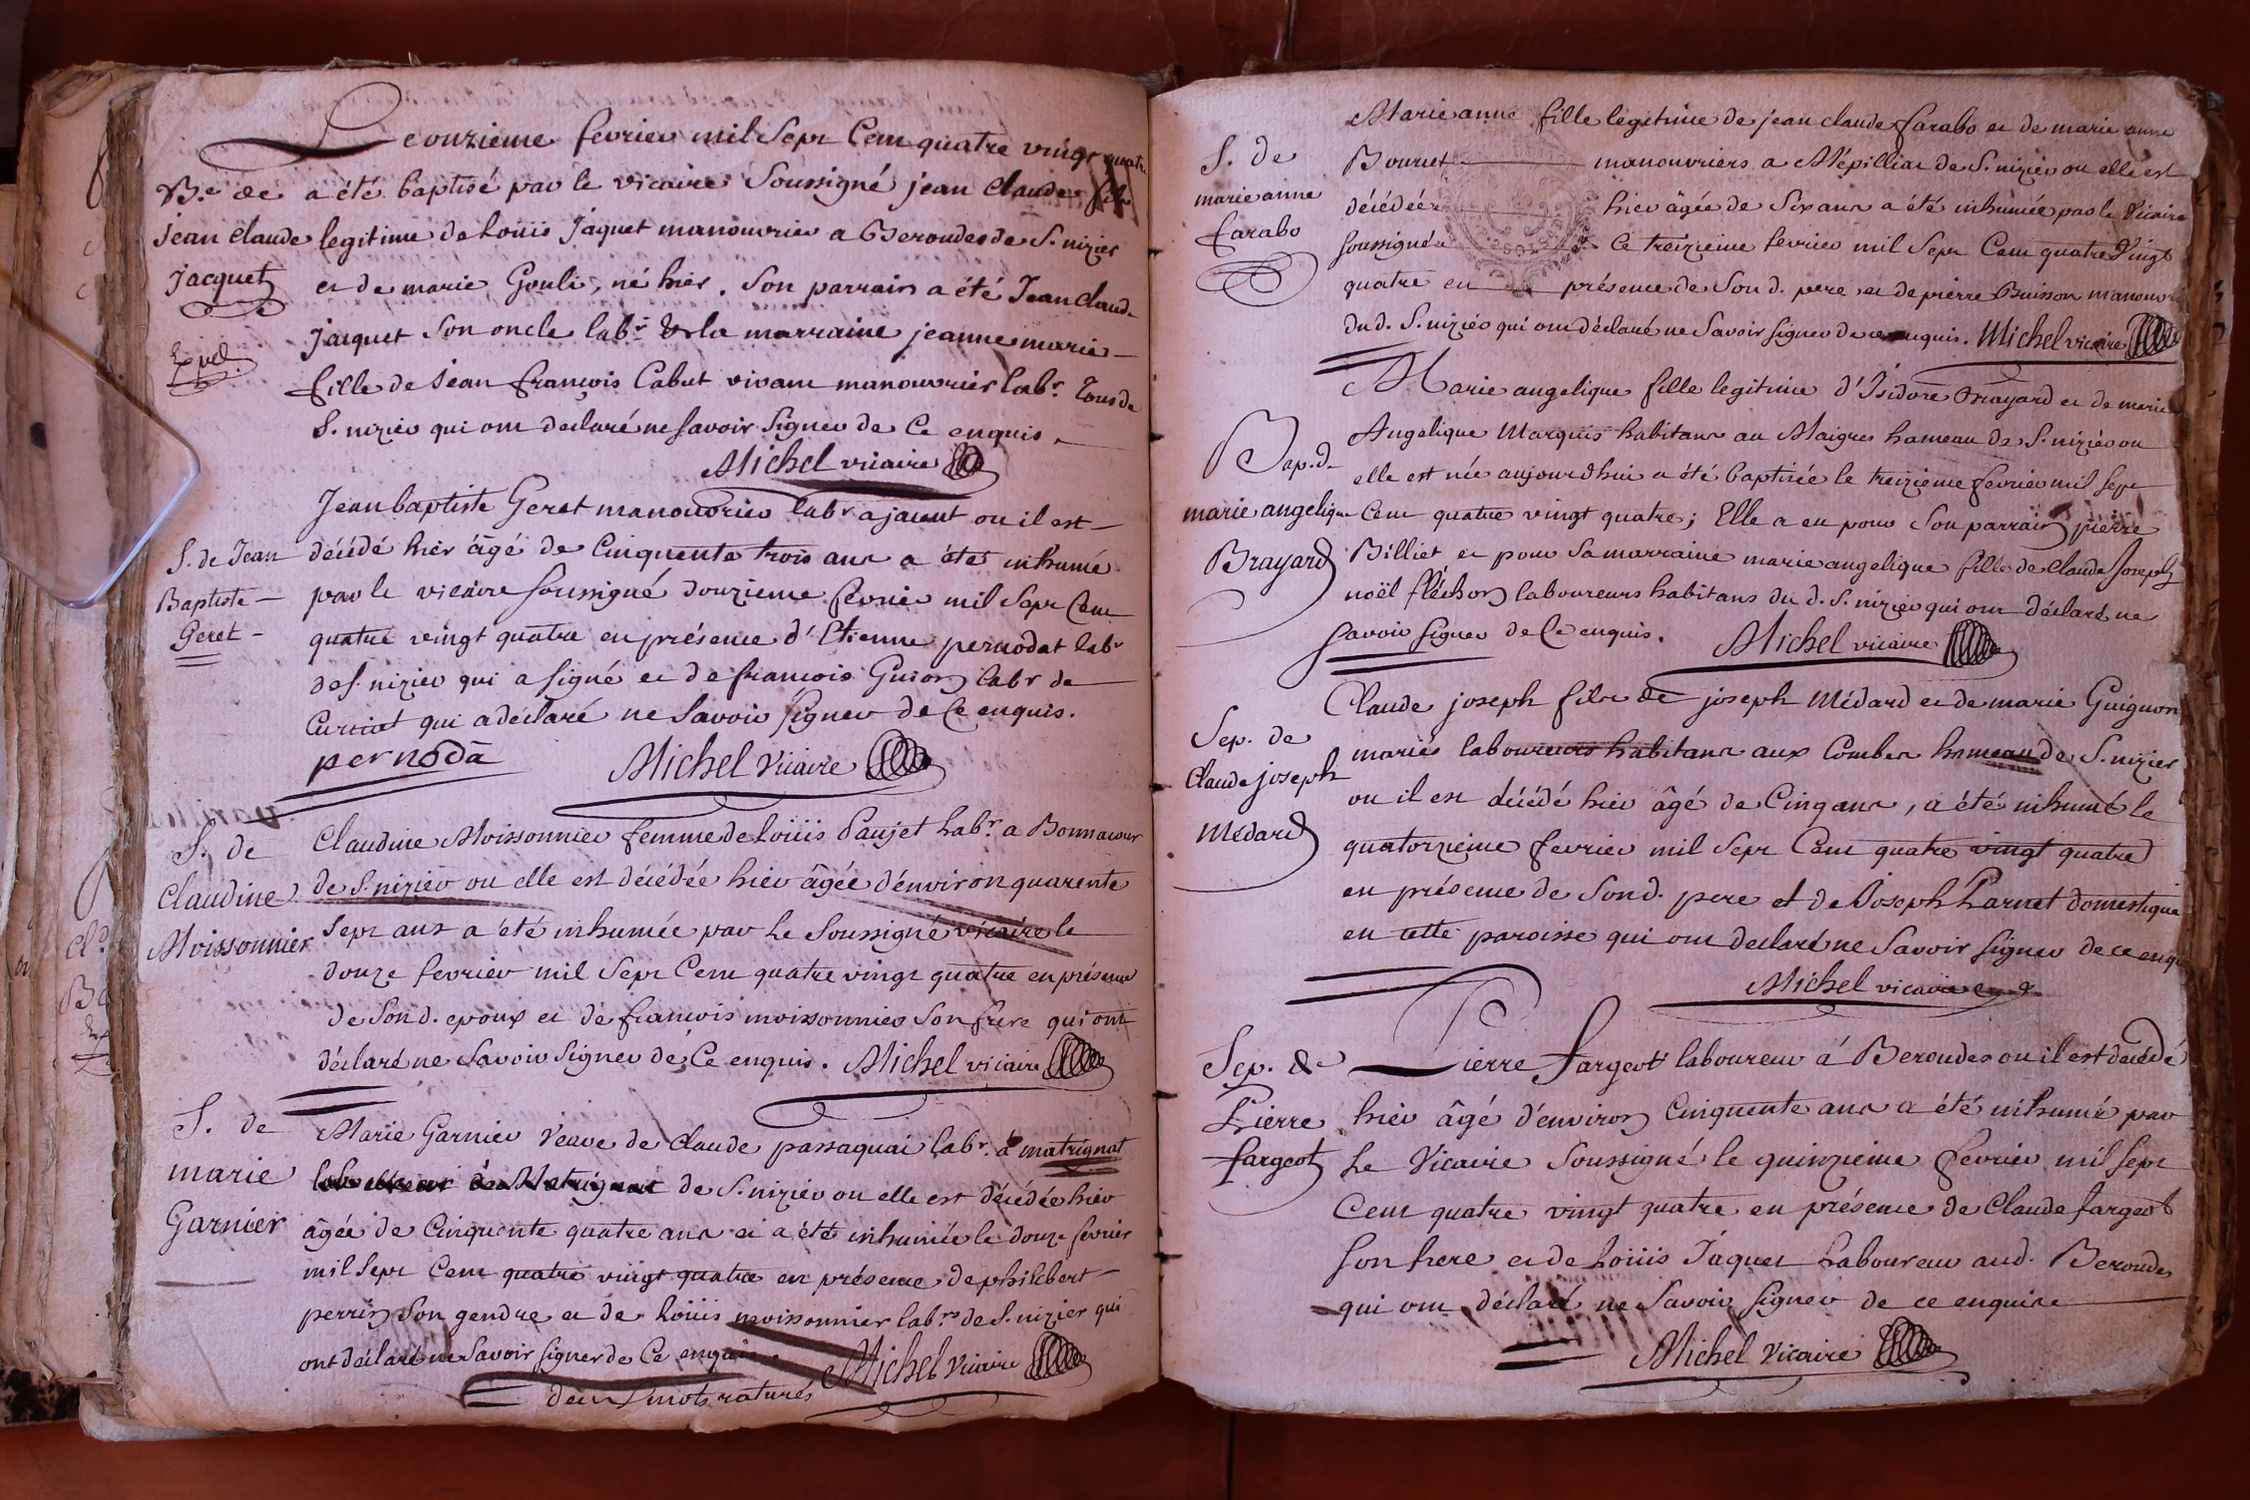 Le onzieme fevrier mil Sept Cent quatre vingt quatre
B.e de
Jean Claude
jacquet
Exped.
a été baptisé par le vicaire Soussigné jean Claude fils
legitime de Loüis Jaquet manouvrier a Beroudes de S. nizier
et de marie Gouli, né hier. Son parrain a été Jean Claude
jacquet Son oncle lab.r & la marraine jeanne marie
fille de Jean françois Cabut vivant manouvrier lab.r tous de
S. nizier qui ont declaré ne Savoir Signer de Ce enquis.
Michel vicaire
S. de Jean
Baptiste
Geret
Jean baptiste Geret manouvrier lab.r a jaunt ou il est
décédé hier âgé de Cinquente trois ans a été inhumé
par le vicaire soussigné douzieme fevrier mil Sept Cent
quatre vingt quatre en présence d'Etienne pernodat lab.r
de S. nizier qui a signé et de francois Guion lab.r de
Curciat qui a déclaré ne Savoir Signer de Ce enquis.
pernodà Michel Vicaire
S. de
Claudine
Moissonnier
Claudine Moissonnier femme de Loüis Paujet Lab.r a Bonnacour
de S. nizier ou elle est décédée hier âgée d'environ quarente
Sept ans a été inhumée par Le Soussigné vicaire le
douze fevrier mil Sept Cent quatre vingt quatre en présence
de Son d. epoux et de francois moissonnier Son frere qui ont
déclaré ne Savoir Signer de Ce enquis. Michel vicaire
S. de
marie
Garnier
Marie Garnier Veuve de Claude passaquai lab.r à matrignat
de S. nizier ou elle est décédée hier
âgée de Cinquente quatre ans et a été inhumée le douze fevrier
mil Sept Cent quatre vingt quatre en présence de philibert
perrin Son gendre et de Loüis moissonnier lab.rs de S. nizier qui
ont déclaré ne Savoir Signer de Ce enquis. Michel Vicaire
deux mots raturés
S. de
marie anne
farabo
Marie anne fille legitime de jean claude farabo et de marie anne
Bouruet manouvriers a Mépilliat de S. nizier ou elle est
décédée hier âgée de Six ans a été inhumée par le Vicaire
Soussigné Ce treizieme fevrier mil Sept Cent quatre Vingt
quatre en présence de Son d. pere et de pierre Buisson manouvrier
du d. S. nizier qui ont déclaré ne Savoir Signer de ce enquis. Michel vicaire
Bap. d.
marie angelique
Brayard
Marie angelique fille legitime d'Isidore Brayard et de marie
Angelique Marquis habitans au Maigres hameau de S. nizier ou
elle est née aujourdhui a été baptisée le treizieme fevrier mil Sept
Cent quatre vingt quatre; Elle a eu pour Son parrain pierre
Billiet et pour Sa marraine marie angelique fille de Claude Joseph
noël fléchon laboureurs habitans du d. S. nizier qui ont déclaré ne
Savoir Signer de Ce enquis. Michel vicaire
Sep. de
Claude joseph
Médard
Claude joseph fils de joseph Médard et de marie Guignon
mariés laboureurs habitans aux Combes hameau de S. nizier
ou il est décédé hier âgé de Cinq ans, a été inhumé le
quatorzieme fevrier mil Sept Cent quatre vingt quatre
en présence de Son d. pere et de Joseph Parnet domestique
en cette paroisse qui ont declaré ne Savoir Signer de ce enquis
Michel vicaire
Sep. de
Pierre
fargeot
Pierre fargeot laboureur á Beroudes ou il est décédé
hier âgé d'environ Cinquente ans a été inhumé par
Le Vicaire Soussigné le quinzieme fevrier mil Sept
Cent quatre vingt quatre en présence de Claude fargeot
Son frere et de Loüis Jaquet Laboureur aud. Beroudes
qui ont déclaré ne Savoir Signer de ce enquire
Michel Vicaire